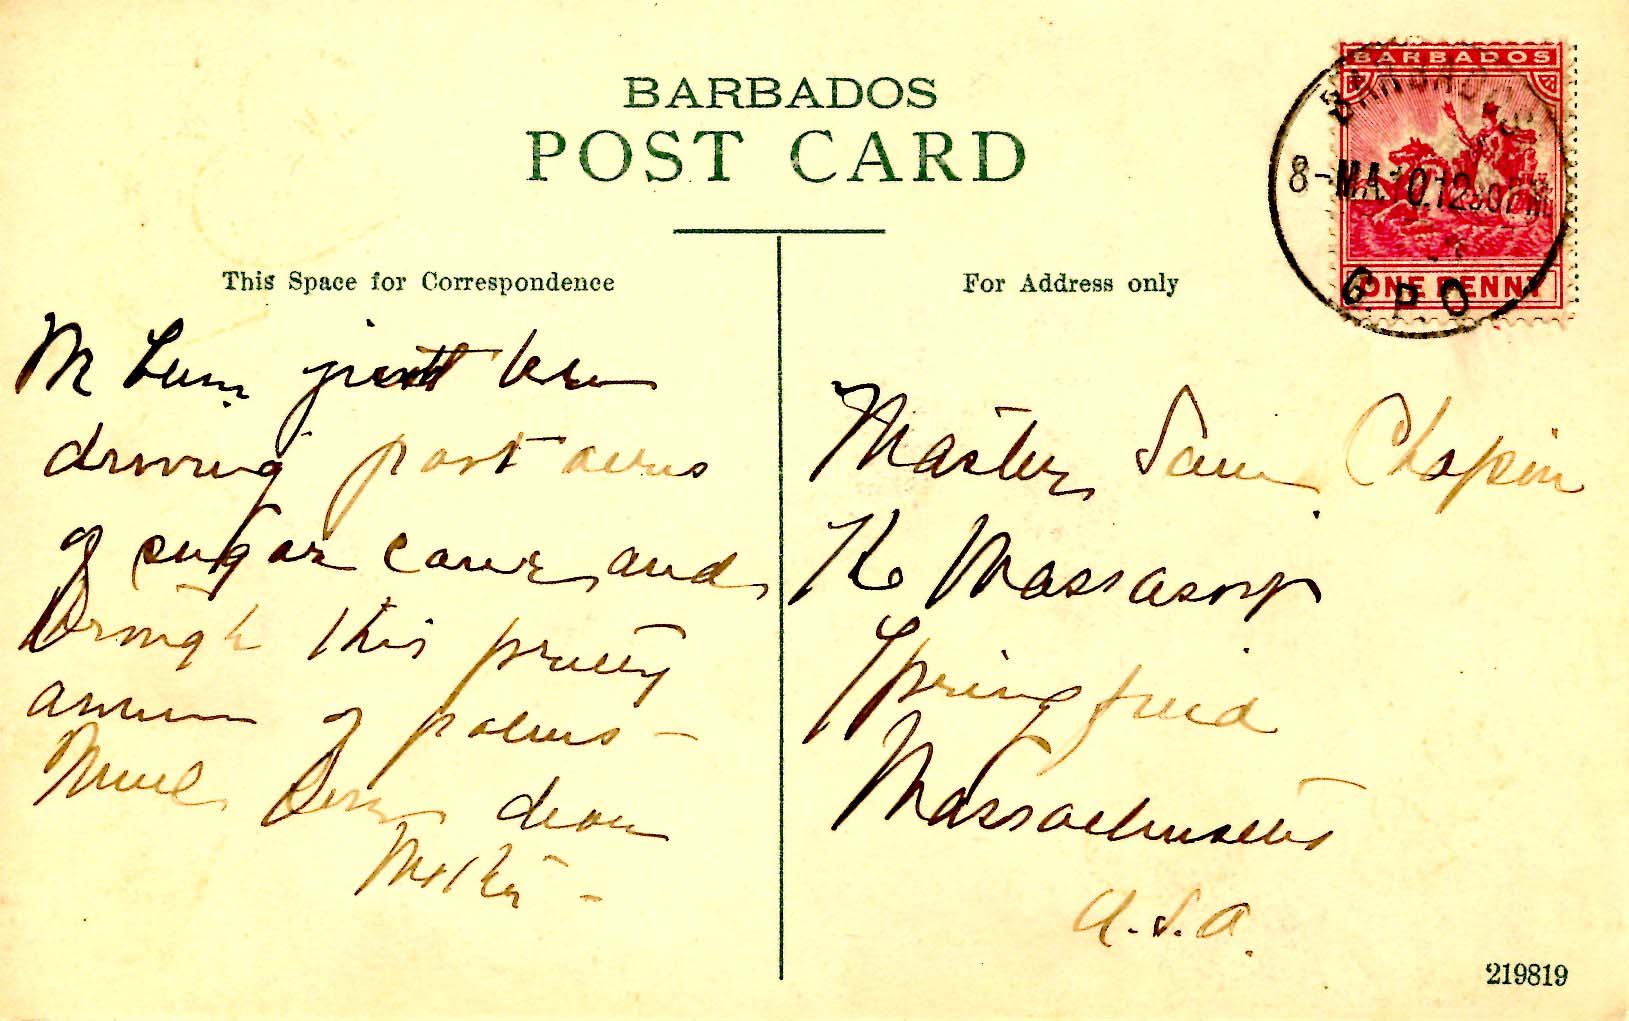 BARBADOS
POST CARD
This Space for Correspondence
For Address only
BARBADOS
ONE PENNY
BARBADOS
8-MA.10.12.30PM
G.P.O
just been
driving past acres
of sugar cane and
through this pretty
avenue of palms -
Much love dear
Mother -
Master Sam Chapin
The Massasoit
Springfield
Massachusetts
U.S.A.
219819